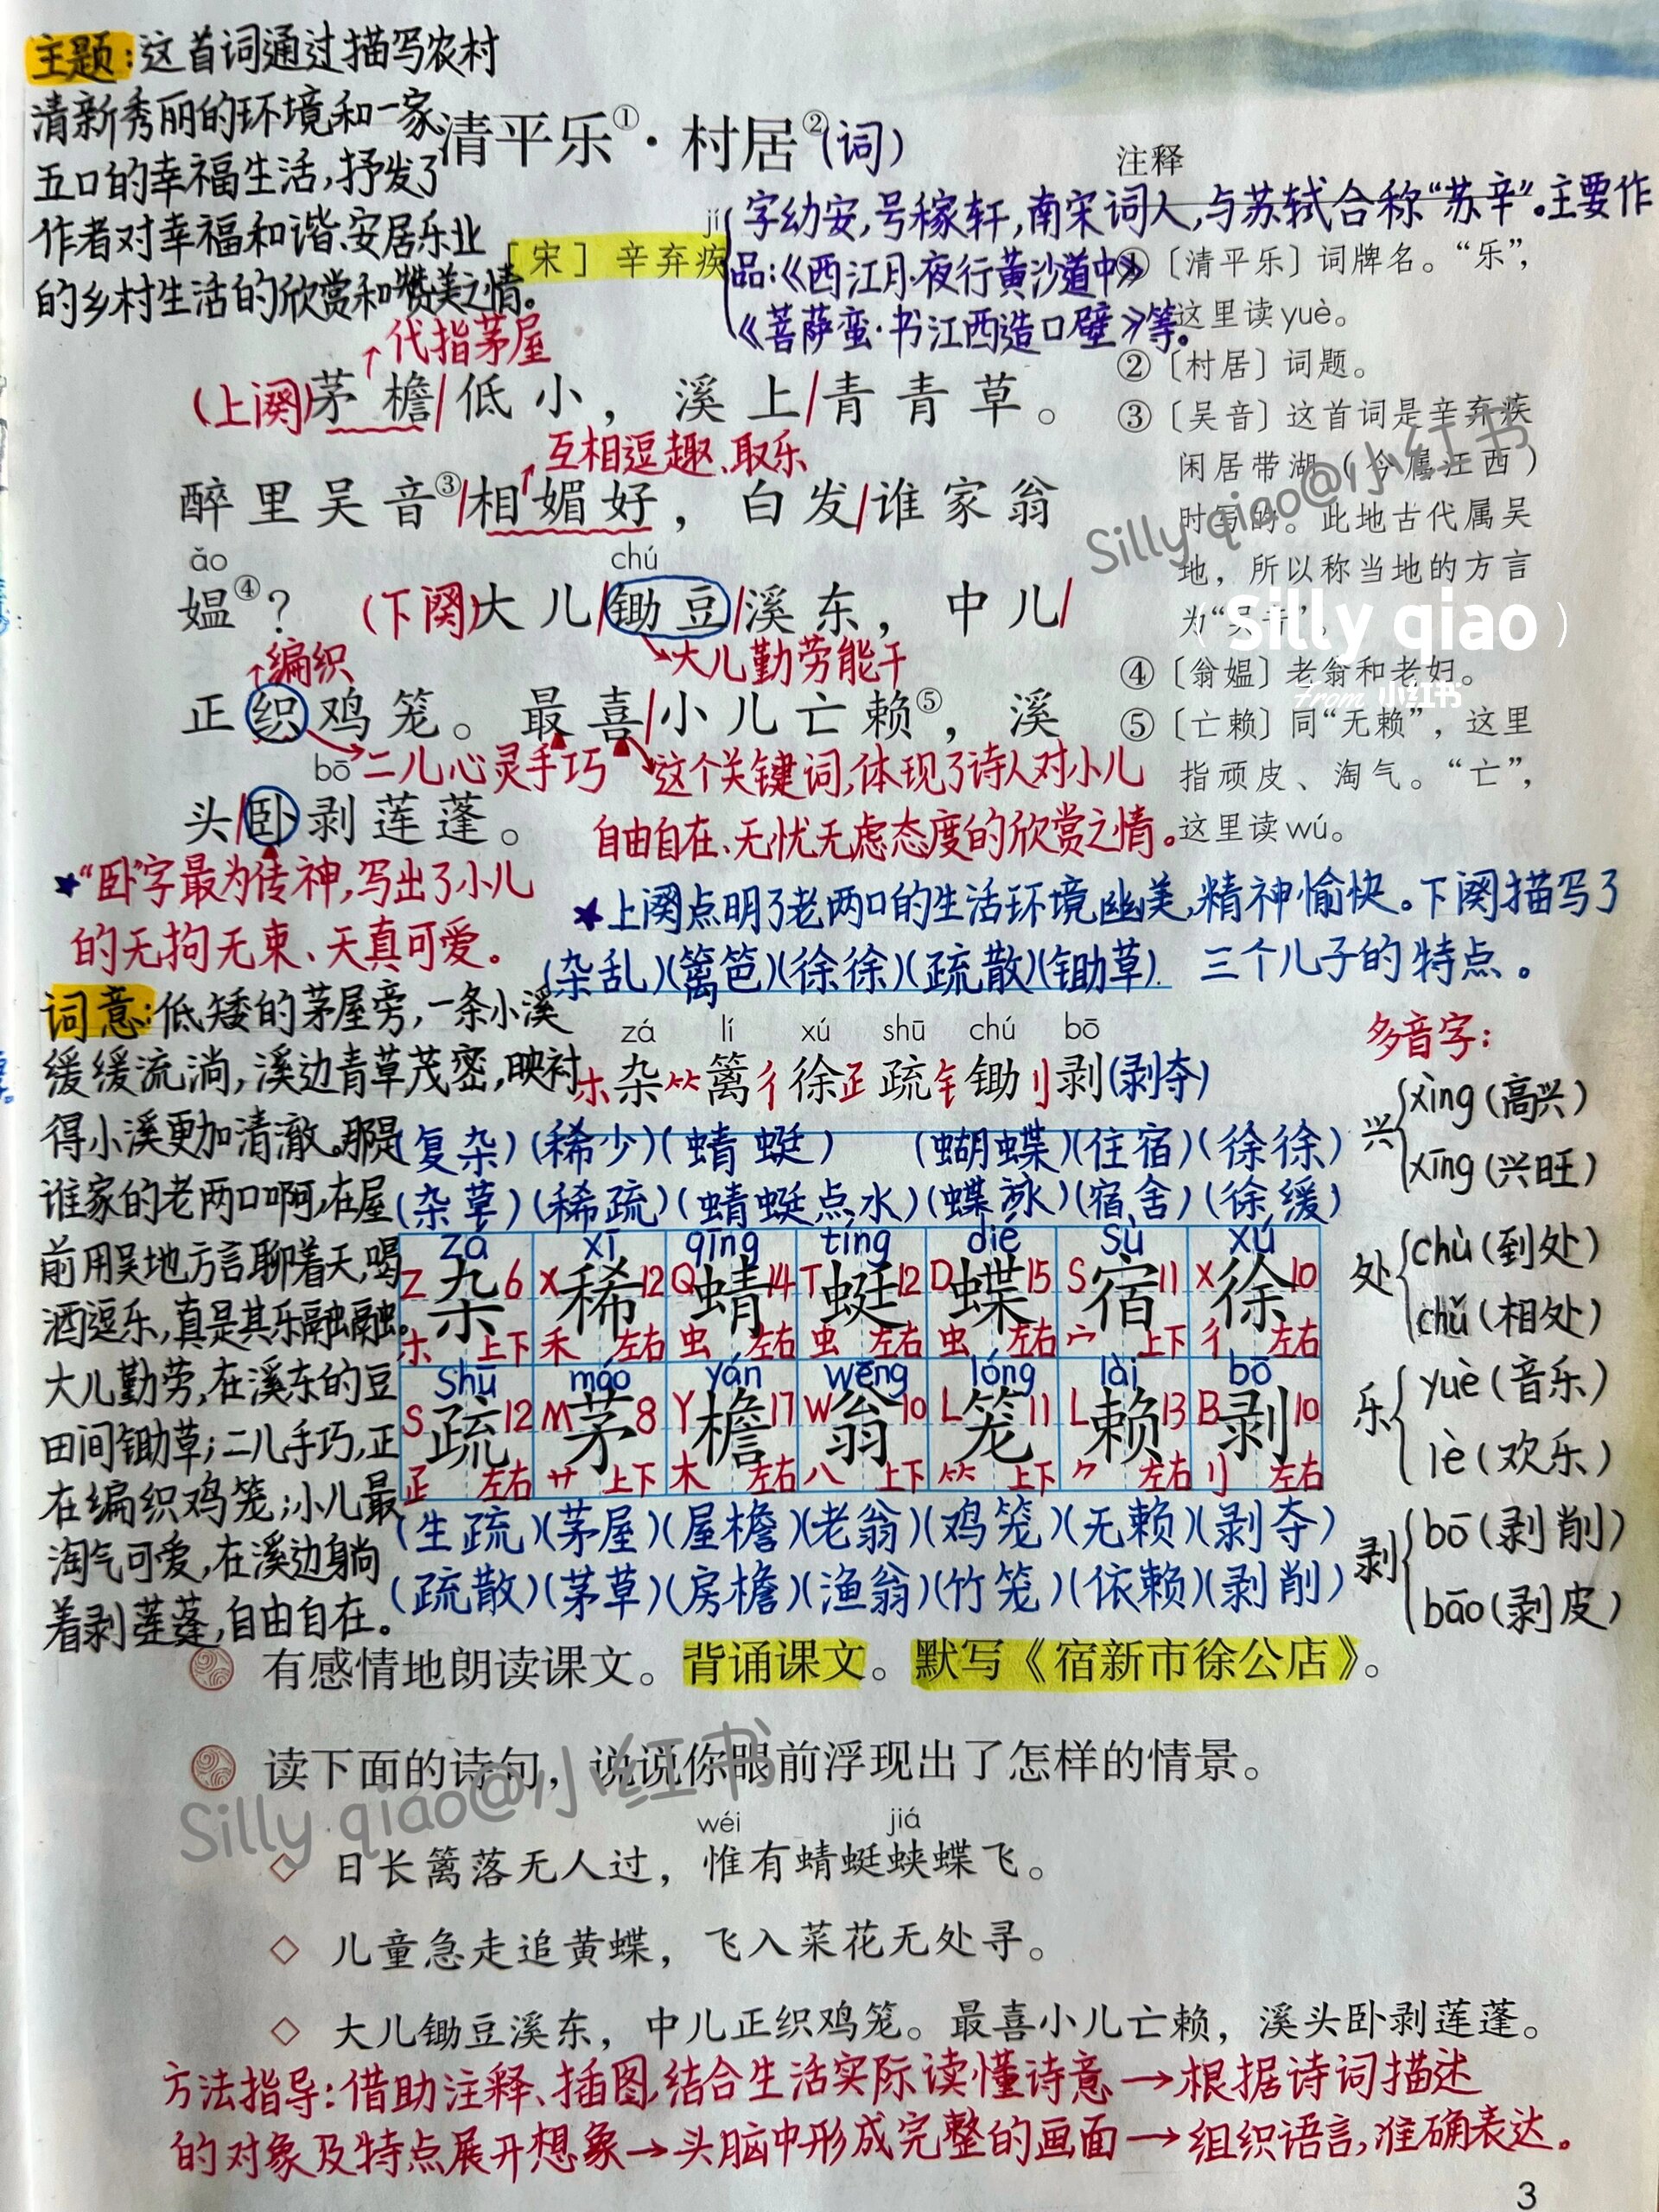 主题:这首词通过描写农村
清新秀丽的环境和一家
五口的幸福生活,抒发了
作者对幸福和谐、安居乐业
的乡村生活的欣赏和赞美之情。
清平乐①·村居②(词)
jí
[宋] 辛弃疾
字幼安,号稼轩,南宋词人,与苏轼合称“苏辛”。主要作
品:《西江月·夜行黄沙道中》
《菩萨蛮·书江西造口壁》等。
代指茅屋
(上阕)茅檐/低小,溪上/青青草。
互相逗趣、取乐
醉里吴音③/相媚好,白发/谁家翁
ǎo chú
媪④?(下阕)大儿/锄豆/溪东,中儿/
编织 大儿勤劳能干
正织鸡笼。最喜/小儿亡赖⑤,溪
bō 二儿心灵手巧 这个关键词,体现了诗人对小儿
自由自在、无忧无虑态度的欣赏之情。
头/卧剥莲蓬。
★“卧”字最为传神,写出了小儿
的无拘无束、天真可爱。
注释
①〔清平乐〕词牌名。“乐”,
这里读yuè。
②〔村居〕词题。
③〔吴音〕这首词是辛弃疾
闲居带湖(今属江西)
时写的。此地古代属吴
地,所以称当地的方言
为“吴音”。
④〔翁媪〕老翁和老妇。
⑤〔亡赖〕同“无赖”,这里
指顽皮、淘气。“亡”,
这里读wú。
Silly qiao@小红书
Silly qiao
From 小红书
★上阕点明了老两口的生活环境幽美,精神愉快。下阕描写了
三个儿子的特点。
(杂乱)(篱笆)(徐徐)(疏散)(锄草)
词意:低矮的茅屋旁,一条小溪
缓缓流淌,溪边青草茂密,映衬
得小溪更加清澈。那是
谁家的老两口啊,在屋
前用吴地方言聊着天,喝
酒逗乐,真是其乐融融。
大儿勤劳,在溪东的豆
田间锄草;二儿手巧,正
在编织鸡笼;小儿最
淘气可爱,在溪边躺
着剥莲蓬,自由自在。
zá lí xú shū chú bō
朩杂 ⺮篱 彳徐 疏 钅锄 刂剥(剥夺)
(复杂)(稀少)(蜻蜓)(蝴蝶)(住宿)(徐徐)
(杂草)(稀疏)(蜻蜓点水)(蝶泳)(宿舍)(徐缓)
zá xī qīng tíng dié sù xú
Z 杂 6 X 稀 12 Q 蜻 14 T 蜓 12 D 蝶 15 S 宿 11 X 徐 10
朩 上下 禾 左右 虫 左右 虫 左右 虫 左右 宀 上下 彳 左右
shū máo yán wēng lóng lài bō
S 疏 12 M 茅 8 Y 檐 17 W 翁 10 L 笼 11 L 赖 13 B 剥 10
左右 艹 上下 木 左右 八 上下 ⺮ 上下 ⺈ 左右 刂 左右
(生疏)(茅屋)(屋檐)(老翁)(鸡笼)(无赖)(剥夺)
(疏散)(茅草)(房檐)(渔翁)(竹笼)(依赖)(剥削)
多音字:
兴 xìng(高兴)
xīng(兴旺)
处 chù(到处)
chǔ(相处)
乐 yuè(音乐)
lè(欢乐)
剥 bō(剥削)
bāo(剥皮)
有感情地朗读课文。背诵课文。默写《宿新市徐公店》。
读下面的诗句,说说你眼前浮现出了怎样的情景。
Silly qiao@小红书
wéi jiá
◇ 日长篱落无人过,惟有蜻蜓蛱蝶飞。
◇ 儿童急走追黄蝶,飞入菜花无处寻。
◇ 大儿锄豆溪东,中儿正织鸡笼。最喜小儿亡赖,溪头卧剥莲蓬。
方法指导:借助注释、插图,结合生活实际读懂诗意→根据诗词描述
的对象及特点展开想象→头脑中形成完整的画面→组织语言,准确表达。
3